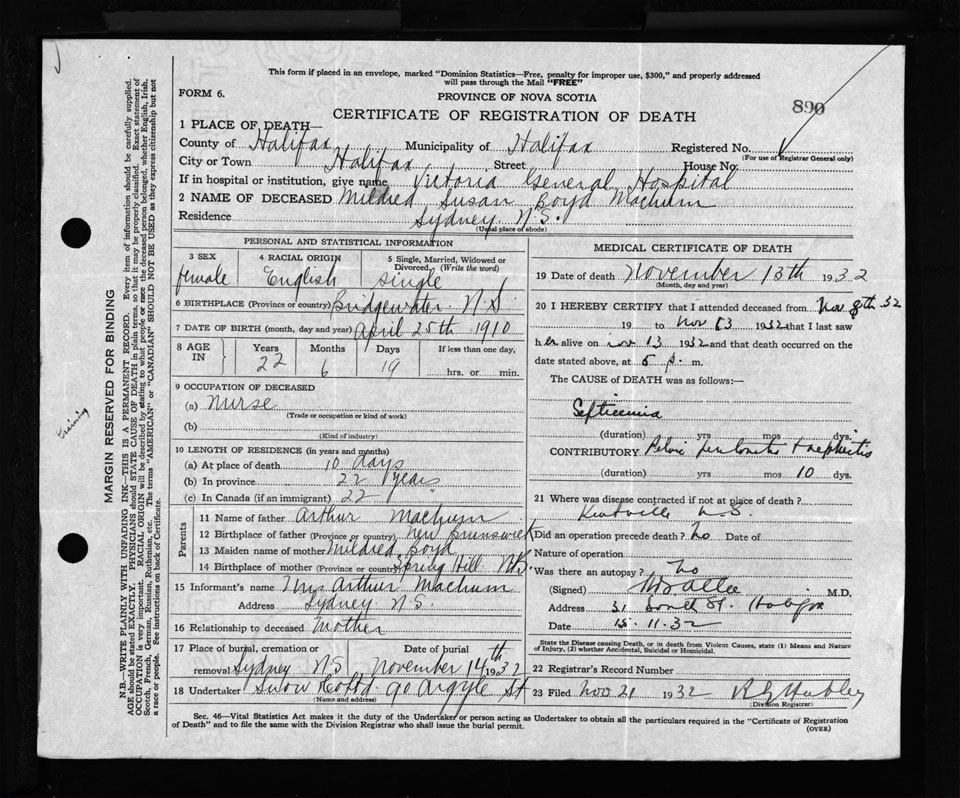 This form if placed in an envelope, marked "Dominion Statistics—Free, penalty for improper use, $300," and properly addressed
will pass through the Mail "FREE"
FORM 6.
PROVINCE OF NOVA SCOTIA
890
CERTIFICATE OF REGISTRATION OF DEATH
1 PLACE OF DEATH—
County of Halifax Municipality of Halifax Registered No.
(For use of Registrar General only)
City or Town Halifax Street House No.
If in hospital or institution, give name Victoria General Hospital
2 NAME OF DECEASED Mildred Susan Boyd Machum
Residence Sydney N.S.
(Usual place of abode)
PERSONAL AND STATISTICAL INFORMATION
3 SEX 4 RACIAL ORIGIN 5 Single, Married, Widowed or Divorced (Write the word)
female English Single
6 BIRTHPLACE (Province or country) Bridgewater N.S.
7 DATE OF BIRTH (month, day and year) April 25th 1910
8 AGE IN Years Months Days If less than one day,
22 6 19 hrs. or min.
9 OCCUPATION OF DECEASED
(a) Nurse
(Trade or occupation or kind of work)
(b)
(Kind of industry)
10 LENGTH OF RESIDENCE (in years and months)
(a) At place of death 10 days
(b) In province 22 years
(c) In Canada (if an immigrant) 22 "
Parents
11 Name of father Arthur Machum
12 Birthplace of father (Province or country) New Brunswick
13 Maiden name of mother Mildred Boyd
14 Birthplace of mother (Province or country) Spring Hill N.S.
15 Informant's name Mrs Arthur Machum
Address Sydney N.S.
16 Relationship to deceased Mother
17 Place of burial, cremation or Date of burial
removal Sydney N.S. November 14th 1932
18 Undertaker Snow Co Ltd 90 Argyle St
(Name and address)
MEDICAL CERTIFICATE OF DEATH
19 Date of death November 13th 1932
(Month, day and year)
20 I HEREBY CERTIFY that I attended deceased from Nov 8th 32
19 to Nov 13 1932 that I last saw
her alive on Nov 13 1932 and that death occurred on the
date stated above, at 5 p. m.
The CAUSE of DEATH was as follows:
Septicemia
(duration) yrs mos dys.
CONTRIBUTORY Pelvic peritonitis + nephritis
(duration) yrs mos 10 dys.
21 Where was disease contracted if not at place of death?
Kentville N.S.
Did an operation precede death? No Date of
Nature of operation
Was there an autopsy? No
(Signed) M.D.
Address 31 South St. Halifax
Date 15.11.32
State the Disease causing Death, or in death from Violent Causes, state (1) Means and Nature
of Injury, (2) whether Accidental, Suicidal or Homicidal.
22 Registrar's Record Number
23 Filed Nov 21 1932
(Division Registrar)
Sec. 46—Vital Statistics Act makes it the duty of the Undertaker or person acting as Undertaker to obtain all the particulars required in the "Certificate of Registration
of Death" and to file the same with the Division Registrar who shall issue the burial permit.
(OVER)
training
MARGIN RESERVED FOR BINDING
N.B.—WRITE PLAINLY WITH UNFADING INK—THIS IS A PERMANENT RECORD. Every item of information should be carefully supplied.
AGE should be stated EXACTLY. PHYSICIANS should STATE CAUSE OF DEATH in plain terms, so that it may be properly classified. Exact statement of
OCCUPATION is very important. RACIAL ORIGIN will be described by stating to what people or race the deceased person belonged, whether English, Irish,
Scotch, French, German, Russian, Ruthenian, etc. The terms "AMERICAN" or "CANADIAN" SHOULD NOT BE USED as they express citizenship but not
a race or people. See instructions on back of Certificate.